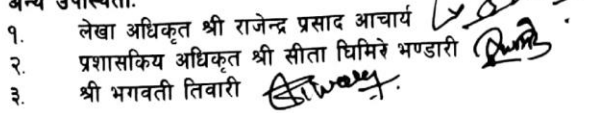 अन्य उपस्थिती:
१. लेखा अधिकृत श्री राजेन्द्र प्रसाद आचार्य
२. प्रशासकिय अधिकृत श्री सीता घिमिरे भण्डारी
३. श्री भगवती तिवारी